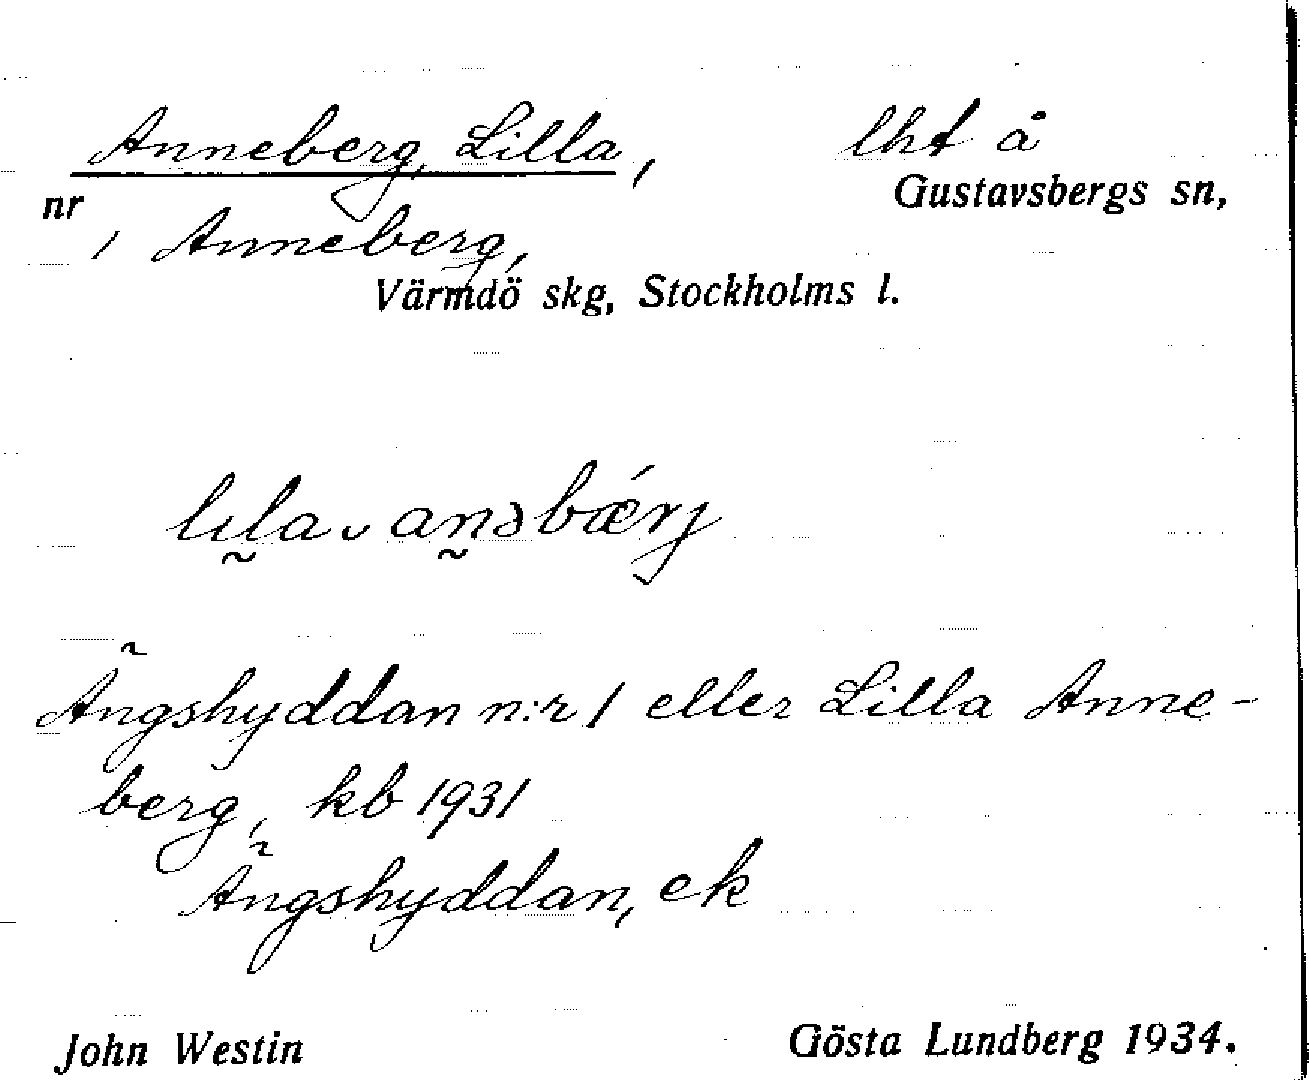 Anneberg, Lilla, lht å
nr Gustavsbergs sn,
1 Anneberg,
Värmdö skg, Stockholms l.
lıl̰a ᴗ an̰əbǽrj
Ängshyddan n:r 1 eller Lilla Anne-
berg, kb 1931
Ängshyddan, ek
John Westin Gösta Lundberg 1934.